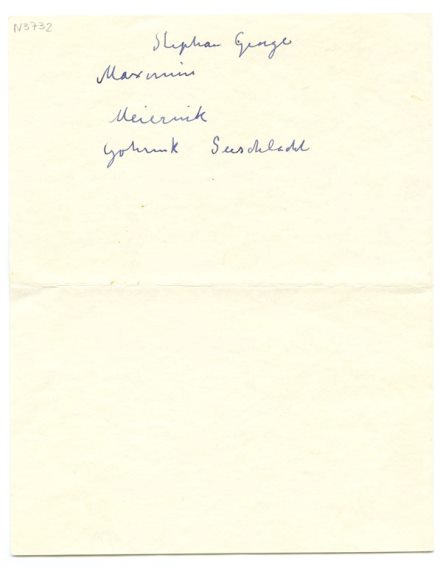 N3732
Stephan George
Maximin
Meiernik
Seeschlacht